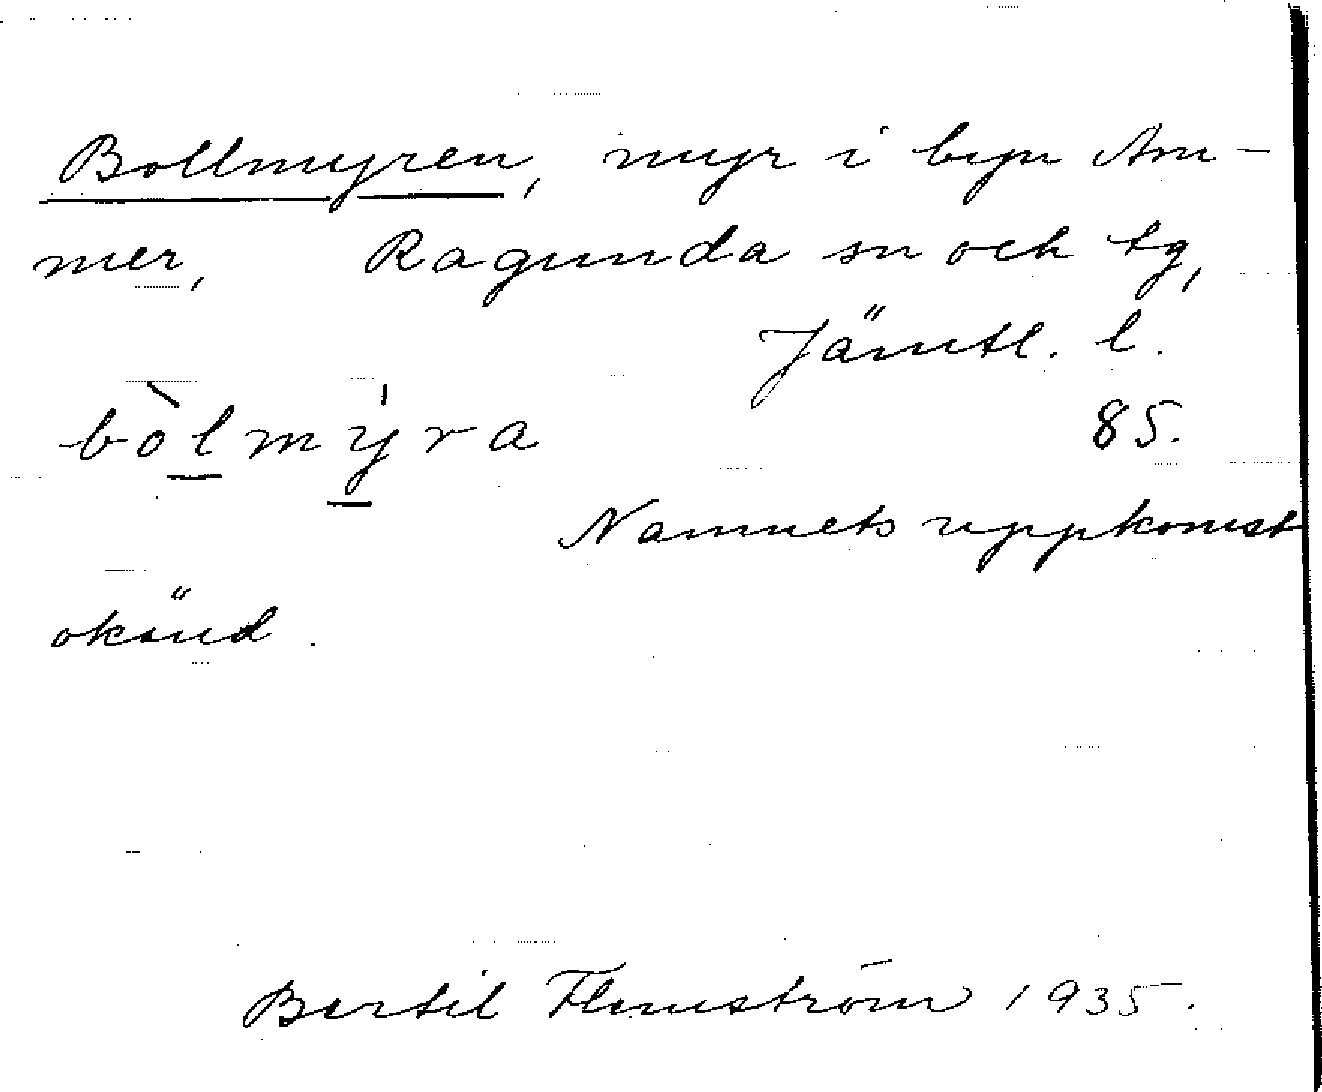 Bollmyren, myr i byn Am-
mer, Ragunda sn och tg,
Jämtl. l.
bòlmýra 85.
Namnets uppkomst
okänd.
Bertil Flemström 1935.